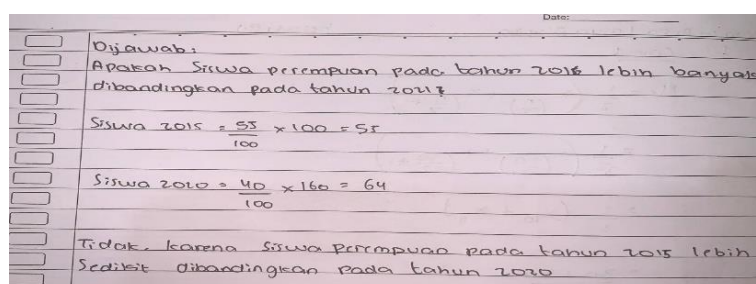 Date:
Dijawab:
Apakah Siswa perempuan pada tahun 2015 lebih banyak
dibandingkan pada tahun 2021?
Siswa 2015 = 55/100 × 100 = 55
Siswa 2020 = 40/100 × 160 = 64
Tidak. karena siswa perempuan pada tahun 2015 lebih
Sedikit dibandingkan pada tahun 2020